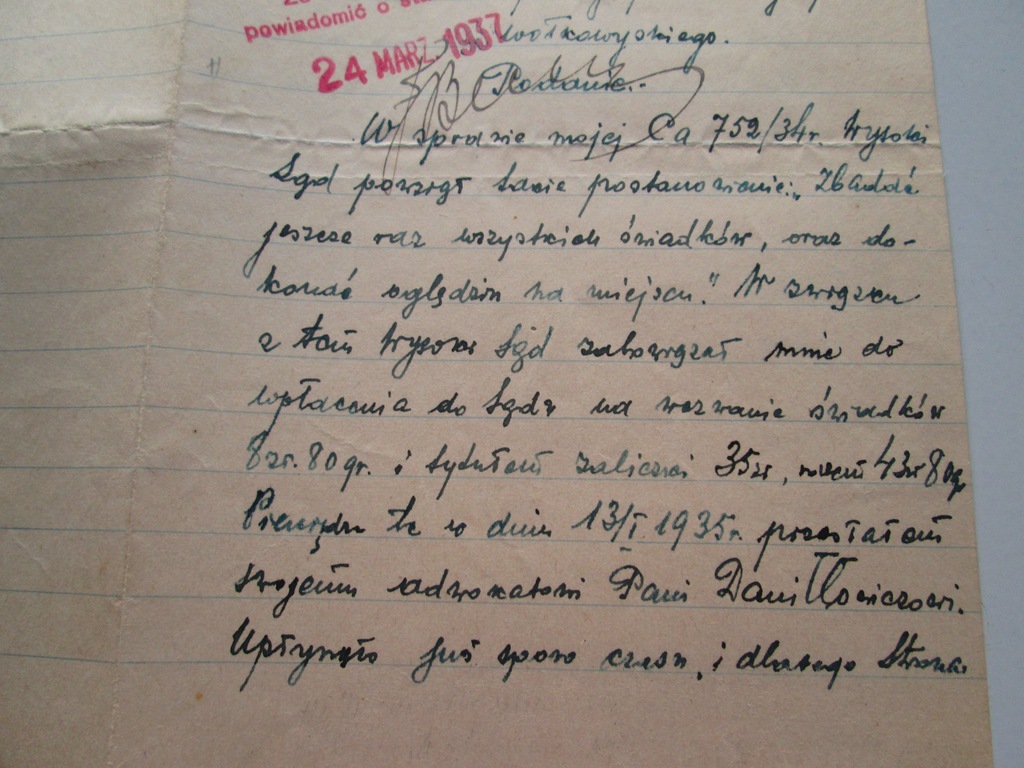 powiadomić o
24 MARZ. 1937
wołkowyskiego.
Podanie.
W sprawie mojej Ca 752/34r. Wysoki
Sąd powziął takie postanowienie: „Zbadać
jeszcze raz wszystkich świadków, oraz do-
konać oględzin na miejscu." W związku
z tem Wysoki Sąd zobowiązał mnie do
wpłacenia do Sądu na wezwanie świadków
8 zł. 80 gr. i tytułem zaliczki 35 zł, razem 43 zł 80 gr
Pieniądze te w dniu 13/I 1935r. przesłałem
swojemu adwokatowi Panu Daniłłowiczowi.
Upłynęło już sporo czasu, i dlatego